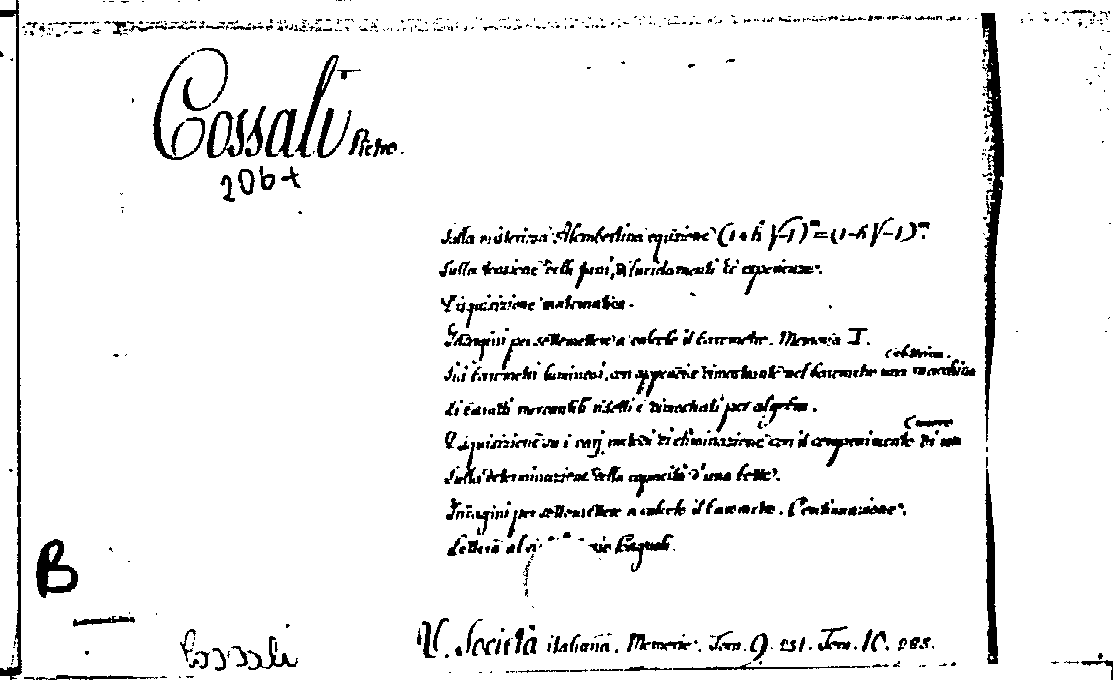 Cossali Pietro.
206+
Sulla misteriosa Alembertina equazione (1+h√-1)ᵐ=(1-h√-1)ᵐ.
Sulla tensione delle funi, Dilucidamenti ed esperienze.
Disquisizione matematica.
Indagini per sottomettere a calcolo il barometro. Memoria I.
barometri luminosi, con appendice nel barometro una macchina
mercantili ridotti e dimostrati per algebra.
Disquisizione su i varj metodi di eliminazione con il componimento di un
Sulla determinazione della capacità d'una botte.
Indagini per sottomettere a calcolo il barometro. Continuazione.
Lettera al
B
Cossali
V. Società italiana. Memorie. Tom. 9. 231. Tom. 10. 285.